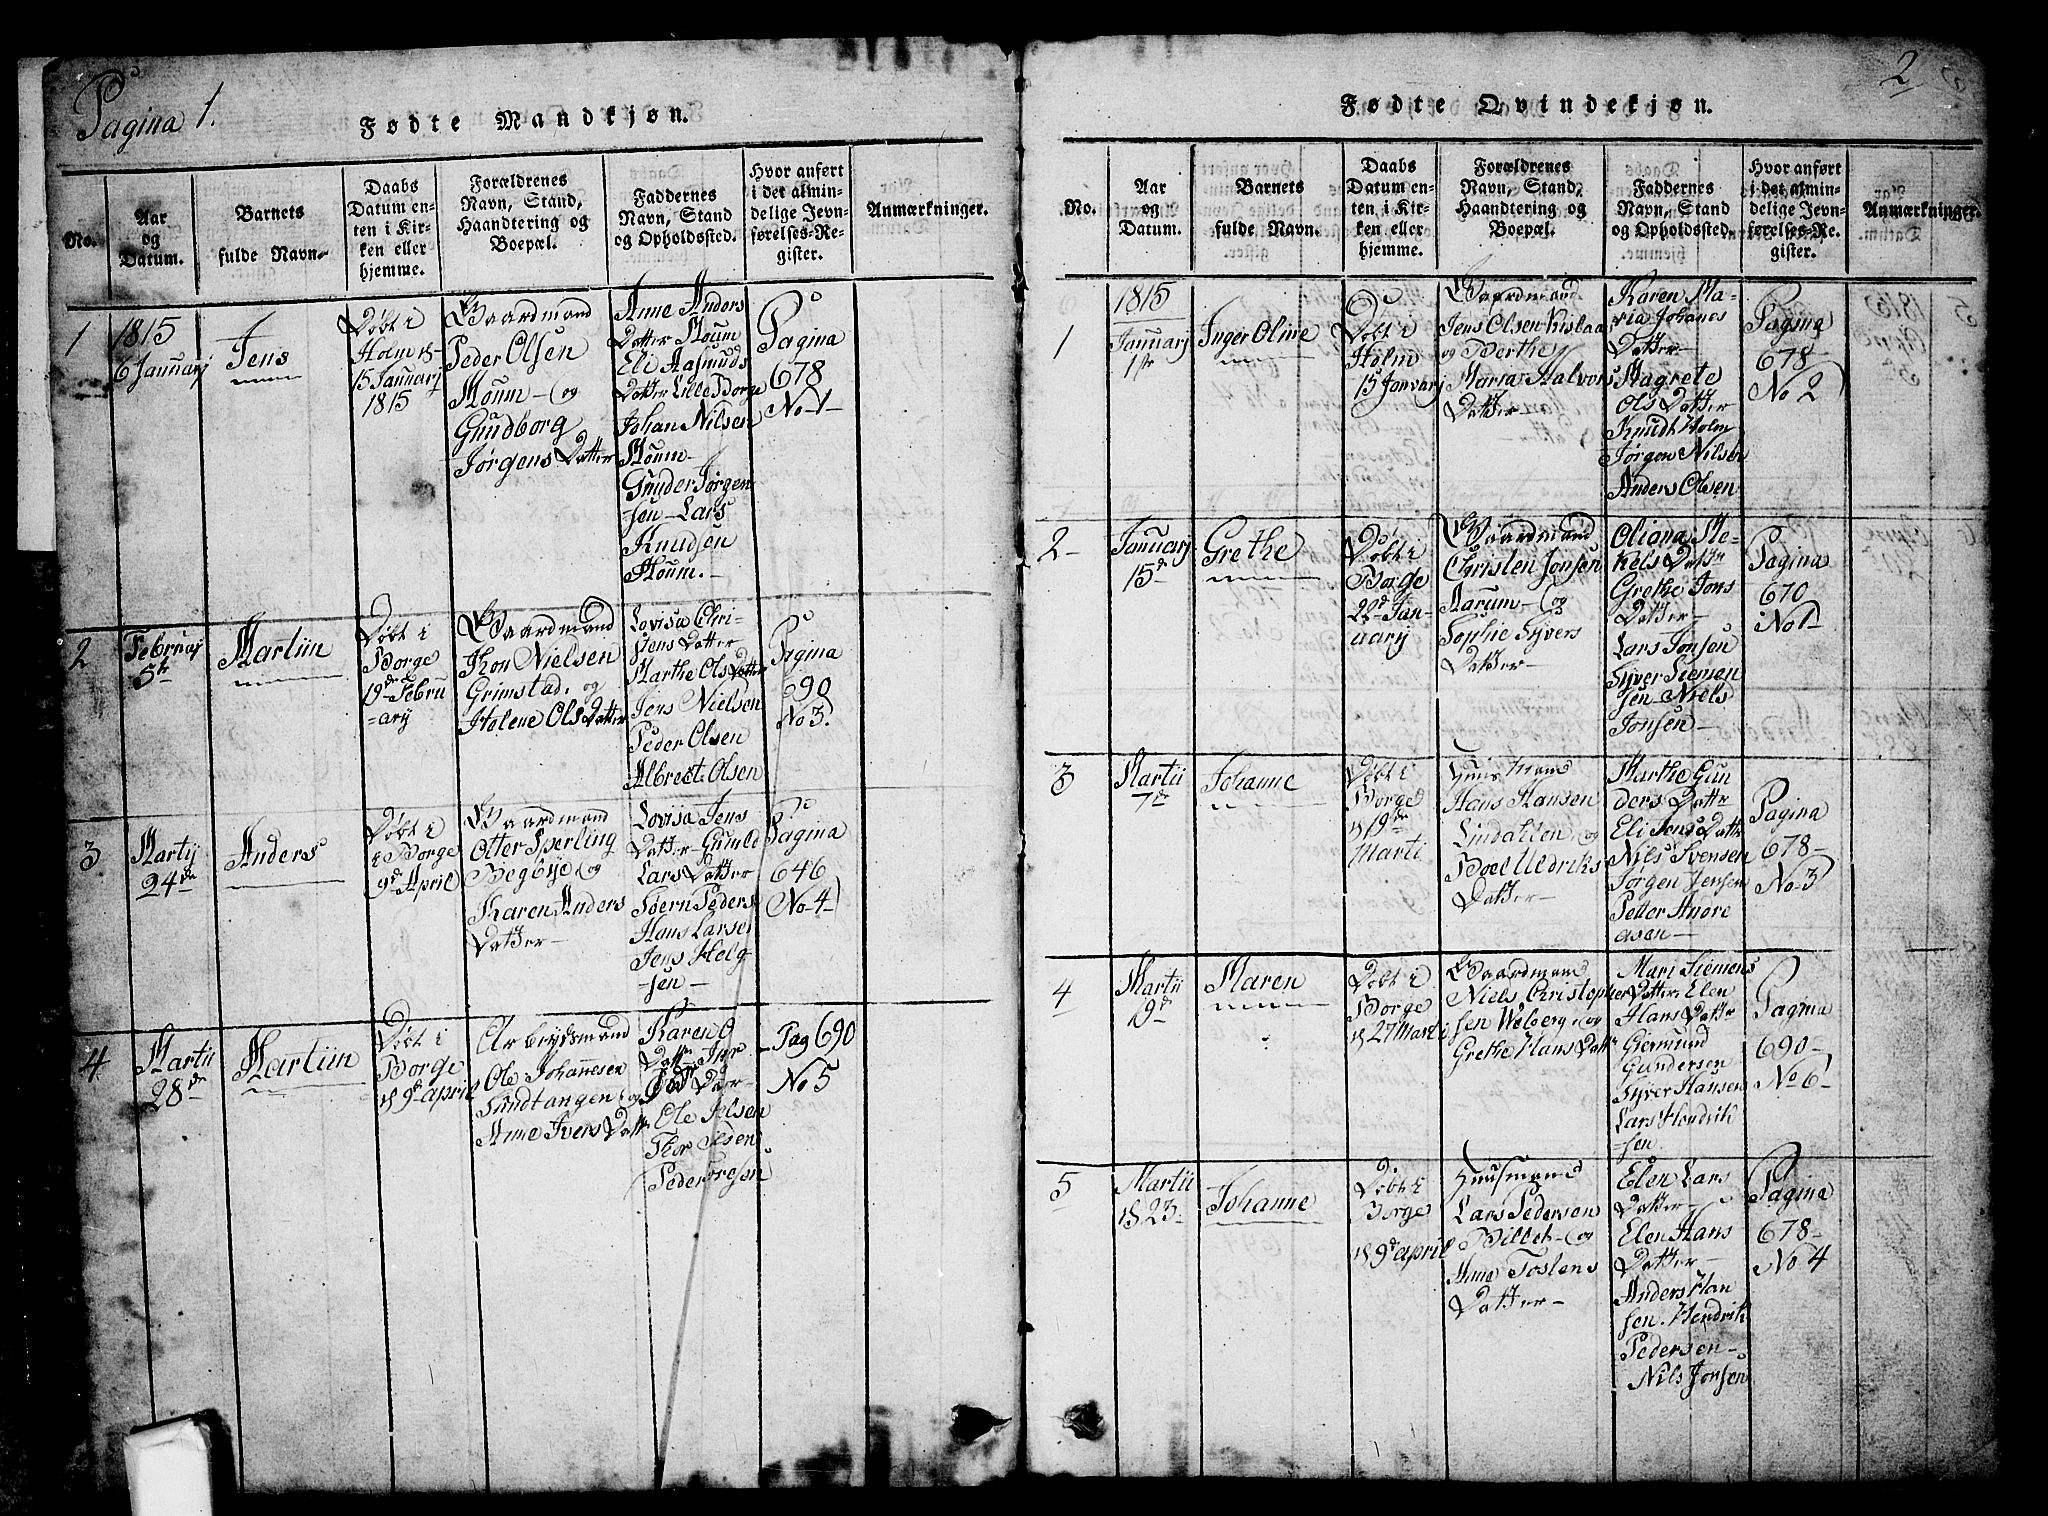 Pagina 1.
Fødte Mandkjøn.
No.
Aar
og
Datum.
Barnets
fulde Navn.
Daabs
Datum en-
ten i Kir-
ken eller
hjemme.
Forældrenes
Navn, Stand,
Haandtering og
Boepæl.
Faddernes
Navn, Stand
og Opholdssted.
Hvor anført
i det almin-
delige Jevn-
førelses-Re-
gister.
Anmærkninger.
1
1815
6 Januarj
Jens
Døbt i
Holm
15 Januarj
1815
Gaardmand
Peder Olsen
Moum - og
Gundborg
Jørgens Datter
Anne Anders
Datter Moum
Eli Aasmuds
Datter Lille Borge
Johan Nilsen
Moum -
Gunder Jørgen
sen - Lars
Knudsen
Moum. -
Pagina
678
No 1 -
2
Februarj
5te
Martiin
Døbt i
Borge
19de Febru
-arj
Gaardmand
Jhon Nielsen
Grimstad. og
Helene Ols Datter
Lovisa Chri-
stens Datter
Marthe Ols Datter
Jens Nielsen
Peder Olsen
Albrect Olsen
Pagina
690
No 3.
3
Martij
24de
Anders
Døbt i
Borge
9de April
Gaardmand
Otter Sperling
Begbye og
Karen Anders
Datter -
Lovisa Jens
Datter - Gunild
Lars Datter
Søern Peders
Hans Larsen
Jens Helg-
-sen -
Pagina
646
No 4
4
Martii
28de
Martiin
Døbt i
Borge
9de april
Arbeydsmand
Ole Johannesen
Sundtangen og
Anne Ivers Datter
Karen O
Datter
Datter -
Ole Jelsen
Thor Olsen
Peder
Pag 690
No 5
2
Fødte Qvindekjøn.
No.
Aar
og
Datum.
Barnets
fulde Navn.
Daabs
Datum en-
ten i Kir-
ken eller
hjemme.
Forældrenes
Navn, Stand,
Haandtering og
Boepæl.
Faddernes
Navn, Stand
og Opholdssted.
Hvor anført
i det almin-
delige Jevn-
førelses-Re-
gister.
Anmærkninger.
1
1815
Januarj
1ste
Inger Oline
Døbt i
Holm
15 Janvarj
Gaardmand
Jens Olsen
og Berthe
Maria Halvors
Datter
Karen Ma-
ria Johanes
Datter -
Magrete
Ols Datter
Knudt Holm
Jørgen Nilsen
Anders Olsen
Pagina
678 -
No 2
2 -
Januarj
15de
Grethe
Døbt i
Borge
22de Jan-
uarij
Gaardmand
Christen Jonsen
Aarum - og
Sophie Syvers
Datter -
Oliana Me-
kels Datter
Grethe Jons
Datter -
Lars Jonsen
Syver Siemen
sen - Niels
Jonsen -
Pagina
670
No 1
3
Martii
7de
Johanne
Døbt i
Borge
19de
Marti
Huusmand
Hans Hansen
Lindallen og
Boel Uldriks
Datter -
Marthe Gun
ders Datter
Eli Jens Datter
Nils Svensen
Jørgen Jensen
Petter Andre
asen -
Pagina
678 -
No 3
4
Martii
19de
Maren
Døbt i
Borge
27 Marti
Gaardmand
Niels Christopher
sen Weberg, og
Grethe Hans Datter
Mari Siemens
Datter. Elen
Hans Datter
Giermund
Gundersen
Syver Hansen
Lars Hendrik
-sen
Pagina
690 -
No 6
5
Martii
23
Johanne
Døbt i
Borge
9de april
Huusmand
Lars Pedersen
Billet - og
Anne Tostens
Datter -
Elen Lars
Datter -
Elen Hans
Datter -
Anders Han
sen. Hendrik
Pedersen -
Nils Jonsen
Pagina
678 -
No 4